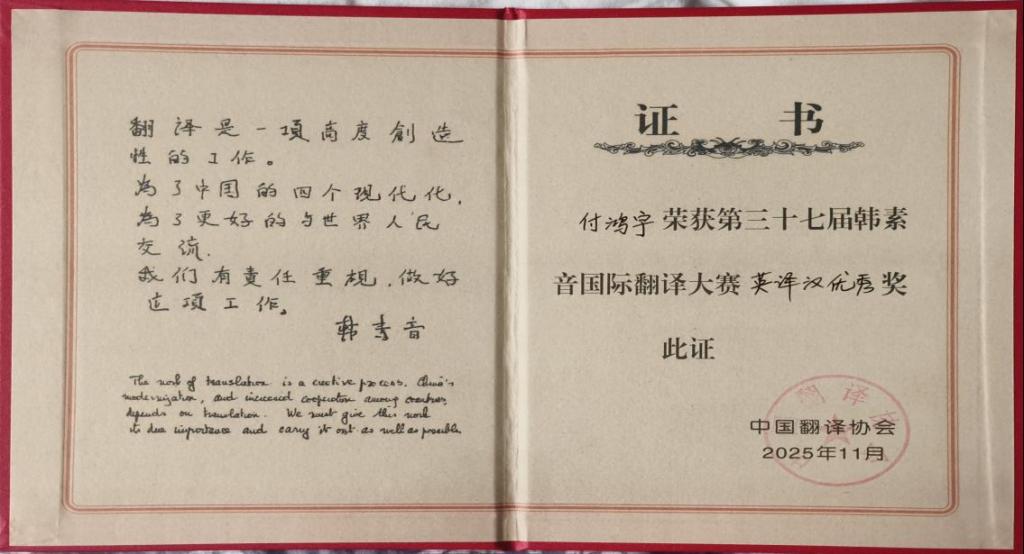 翻译是一項高度創造
性的工作。
為了中国的四个现代化,
為了更好的与世界人民
交流.
我们有責任重視,做好
这項工作。
韩素音
The work of translation is a creative process. China's
modernization, and increased cooperation among countries,
depends on translation. We must give this work
its due importance and carry it out as well as possible.
证 书
付鸿宇 荣获第三十七届韩素
音国际翻译大赛 英译汉优秀 奖
此证
中国翻译协会
2025年11月